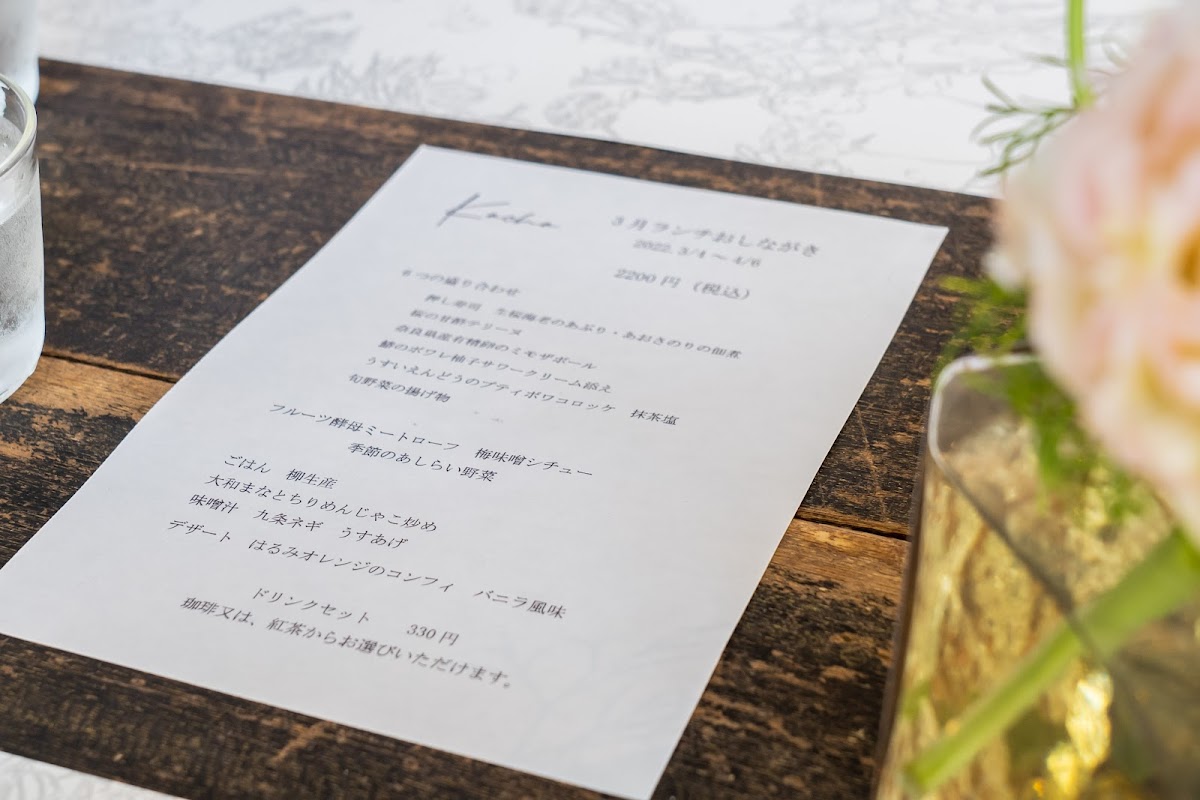 Kacha
3月ランチおしながき
2022. 3/4 ～ 4/6
2200 円（税込）
6つの盛り合わせ
押し寿司 生桜海老のあぶり・あおさのりの佃煮
桜の甘酢テリーヌ
奈良県産有精卵のミモザボール
鰆のポワレ柚子サワークリーム添え
うすいえんどうのプティポワコロッケ 抹茶塩
旬野菜の揚げ物
フルーツ酵母ミートローフ 梅味噌シチュー
季節のあしらい野菜
ごはん 柳生産
大和まなとちりめんじゃこ炒め
味噌汁 九条ネギ うすあげ
デザート はるみオレンジのコンフィ バニラ風味
ドリンクセット 330 円
珈琲又は、紅茶からお選びいただけます。